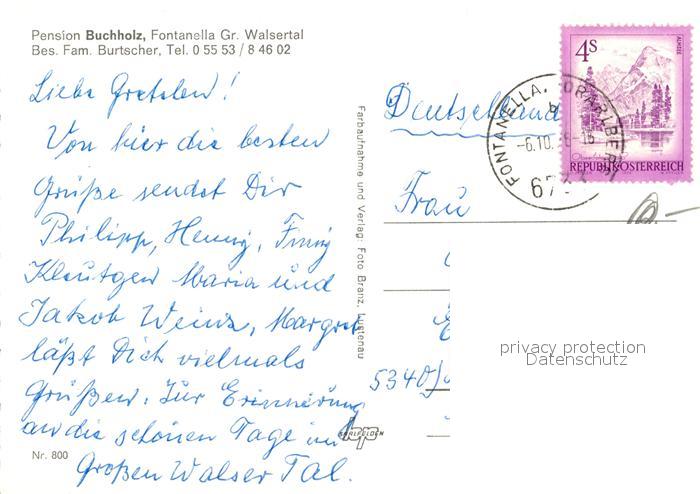 Pension Buchholz, Fontanella Gr. Walsertal
Bes. Fam. Burtscher, Tel. 0 55 53 / 8 46 02
Liebe Gretchen!
Von hier die besten
Grüße sendet Dir
Philipp, Henny,
Kleutgen Maria und
Jakob Weinz, Margret
läßt Dich vielmals
Grüßen. Zur Erinnerung
an die schönen Tage im
Großen Walser Tal.
Nr. 800
Farbaufnahme und Verlag: Foto Branz, Lustenau
Deutschland
Frau
5340
4S
ALMSEE
REPUBLIK ÖSTERREICH
FONTANELLA, VORARLBERG
-6.10.
67
privacy protection
Datenschutz